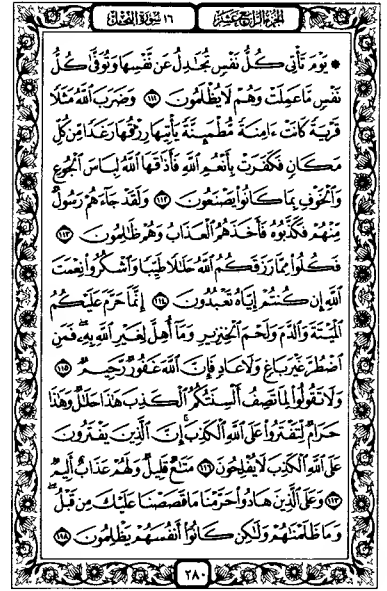 الجزء الرابع عشر
١٦ سورة النحل
۞ يَوْمَ تَأْتِى كُلُّ نَفْسٍ تُجَـٰدِلُ عَن نَّفْسِهَا وَتُوَفَّىٰ كُلُّ
نَفْسٍ مَّا عَمِلَتْ وَهُمْ لَا يُظْلَمُونَ ١١١ وَضَرَبَ ٱللَّهُ مَثَلًا
قَرْيَةً كَانَتْ ءَامِنَةً مُّطْمَئِنَّةً يَأْتِيهَا رِزْقُهَا رَغَدًا مِّن كُلِّ
مَكَانٍ فَكَفَرَتْ بِأَنْعُمِ ٱللَّهِ فَأَذَٰقَهَا ٱللَّهُ لِبَاسَ ٱلْجُوعِ
وَٱلْخَوْفِ بِمَا كَانُوا۟ يَصْنَعُونَ ١١٢ وَلَقَدْ جَآءَهُمْ رَسُولٌ
مِّنْهُمْ فَكَذَّبُوهُ فَأَخَذَهُمُ ٱلْعَذَابُ وَهُمْ ظَـٰلِمُونَ ١١٣
فَكُلُوا۟ مِمَّا رَزَقَكُمُ ٱللَّهُ حَلَـٰلًا طَيِّبًا وَٱشْكُرُوا۟ نِعْمَتَ
ٱللَّهِ إِن كُنتُمْ إِيَّاهُ تَعْبُدُونَ ١١٤ إِنَّمَا حَرَّمَ عَلَيْكُمُ
ٱلْمَيْتَةَ وَٱلدَّمَ وَلَحْمَ ٱلْخِنزِيرِ وَمَآ أُهِلَّ لِغَيْرِ ٱللَّهِ بِهِۦ ۖ فَمَنِ
ٱضْطُرَّ غَيْرَ بَاغٍ وَلَا عَادٍ فَإِنَّ ٱللَّهَ غَفُورٌ رَّحِيمٌ ١١٥
وَلَا تَقُولُوا۟ لِمَا تَصِفُ أَلْسِنَتُكُمُ ٱلْكَذِبَ هَـٰذَا حَلَـٰلٌ وَهَـٰذَا
حَرَامٌ لِّتَفْتَرُوا۟ عَلَى ٱللَّهِ ٱلْكَذِبَ ۚ إِنَّ ٱلَّذِينَ يَفْتَرُونَ
عَلَى ٱللَّهِ ٱلْكَذِبَ لَا يُفْلِحُونَ ١١٦ مَتَـٰعٌ قَلِيلٌ وَلَهُمْ عَذَابٌ أَلِيمٌ
١١٧ وَعَلَى ٱلَّذِينَ هَادُوا۟ حَرَّمْنَا مَا قَصَصْنَا عَلَيْكَ مِن قَبْلُ ۖ
وَمَا ظَلَمْنَـٰهُمْ وَلَـٰكِن كَانُوٓا۟ أَنفُسَهُمْ يَظْلِمُونَ ١١٨
٢٨٠